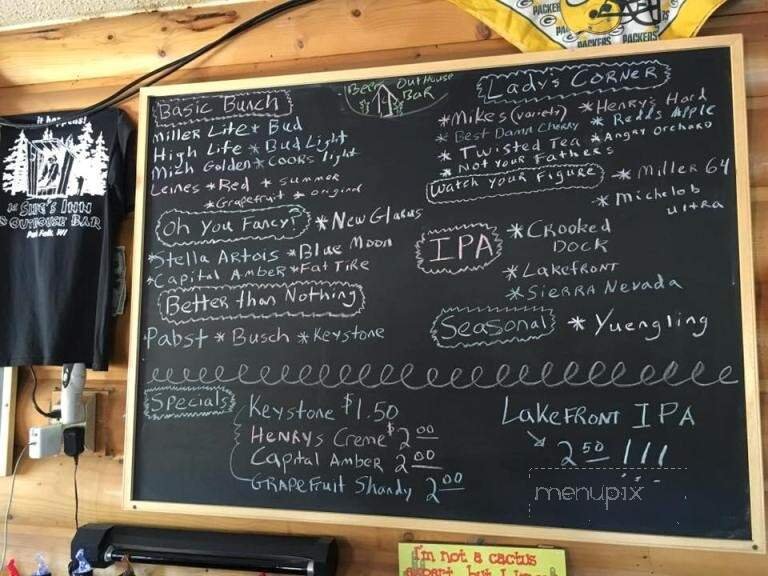 PACKERS
PACKERS
PACKERS
SHE'S INN
OUTHOUSE BAR
Beer OutHouse
BAR
Basic Bunch
Miller Lite * Bud
High Life * Bud Light
Mich Golden * Coors light
Leines * Red * summer
* Grapefruit * original
Oh You Fancy? * New Glarus
* Stella Artois * Blue Moon
* Capital Amber * Fat Tire
Better than Nothing
Pabst * Busch * Keystone
Lady's Corner
* Mikes (variety) * Henry's Hard
* Best Damn Cherry * Redds Apple
* Twisted Tea * Angry orchard
* Not Your Fathers
Watch your Figure * Miller 64
* Michelob
ultra
IPA * Crooked
Dock
* Lakefront
* Sierra Nevada
Seasonal * Yuengling
Specials
Keystone $1.50
HENRYS Creme $2.00
Capital Amber 2.00
GRAPEFruit Shandy 2.00
LakeFRONT IPA
2.50 !!!
menupix
I'm not a cactus